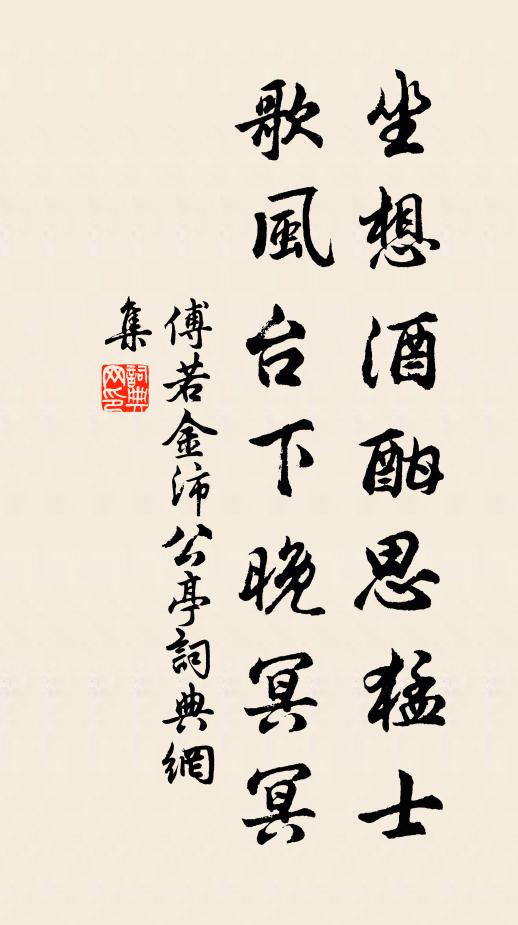 坐想酒酣思猛士
歌風台下晚冥冥
傅若金沛公亭詞典網
集
詞典
网印